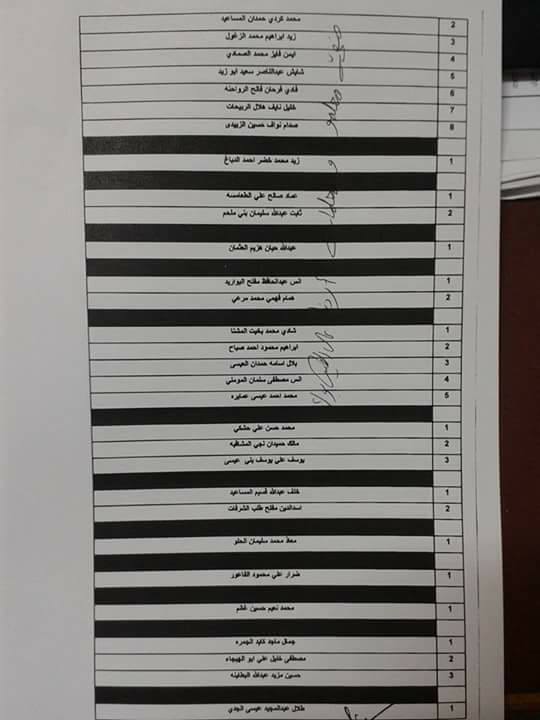 2 محمد كردي حمدان المساعيد
3 زيد ابراهيم محمد الزغول
4 ايمن فايز محمد الصمادي
5 شايش عبدالناصر سعيد ابو زيد
6 فادي فرحان فالح الرواحنه
7 خليل نايف هلال الربيحات
8 صدام نواف حسين الزبيدي
1 زيد محمد خضر احمد الدباغ
1 عماد صالح علي الطعامسه
2 ثابت عبدالله سليمان بني ملحم
1 عبدالله حيان هزيم العثمان
1 انس عبدالحافظ مفلح البواريد
2 همام فهمي محمد مرعي
1 شادي محمد بخيت المشنا
2 ابراهيم محمود احمد صباح
3 بلال اسامه حمدان العيسى
4 انس مصطفى سلمان المومني
5 محمد احمد عيسى عمايره
1 محمد حسن علي حشكي
2 مالك حميدان نجي المشاقبه
3 يوسف علي يوسف بني عيسى
1 خلف عبدالله قسيم المساعيد
2 اسدالدين مفلح طلب الشرفات
1 معاذ محمد سليمان الحلو
1 ضرار علي محمود الفاعور
1 محمد نعيم حسين غنم
1 جمال ماجد خابد الجمره
2 مصطفى خليل علي ابو الهيجاء
3 حسين مزيد عبدالله البطاينه
1 طلال عبدالمجيد عيسى الجدي